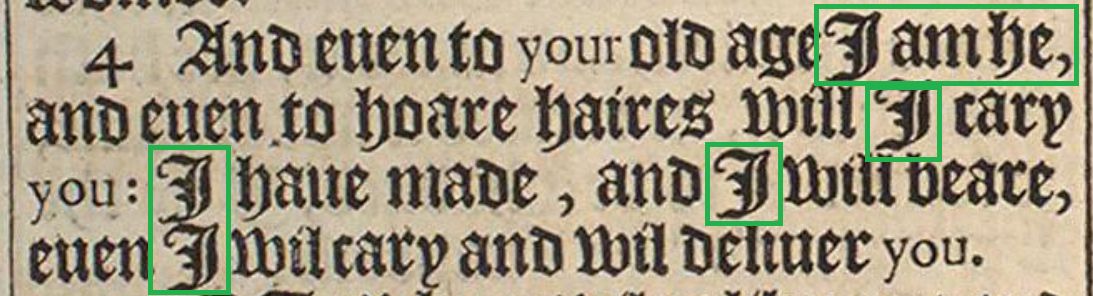 4 And euen to your old age I am he,
and euen to hoare haires will I cary
you: I haue made, and I will beare,
euen I wil cary and wil deliuer you.